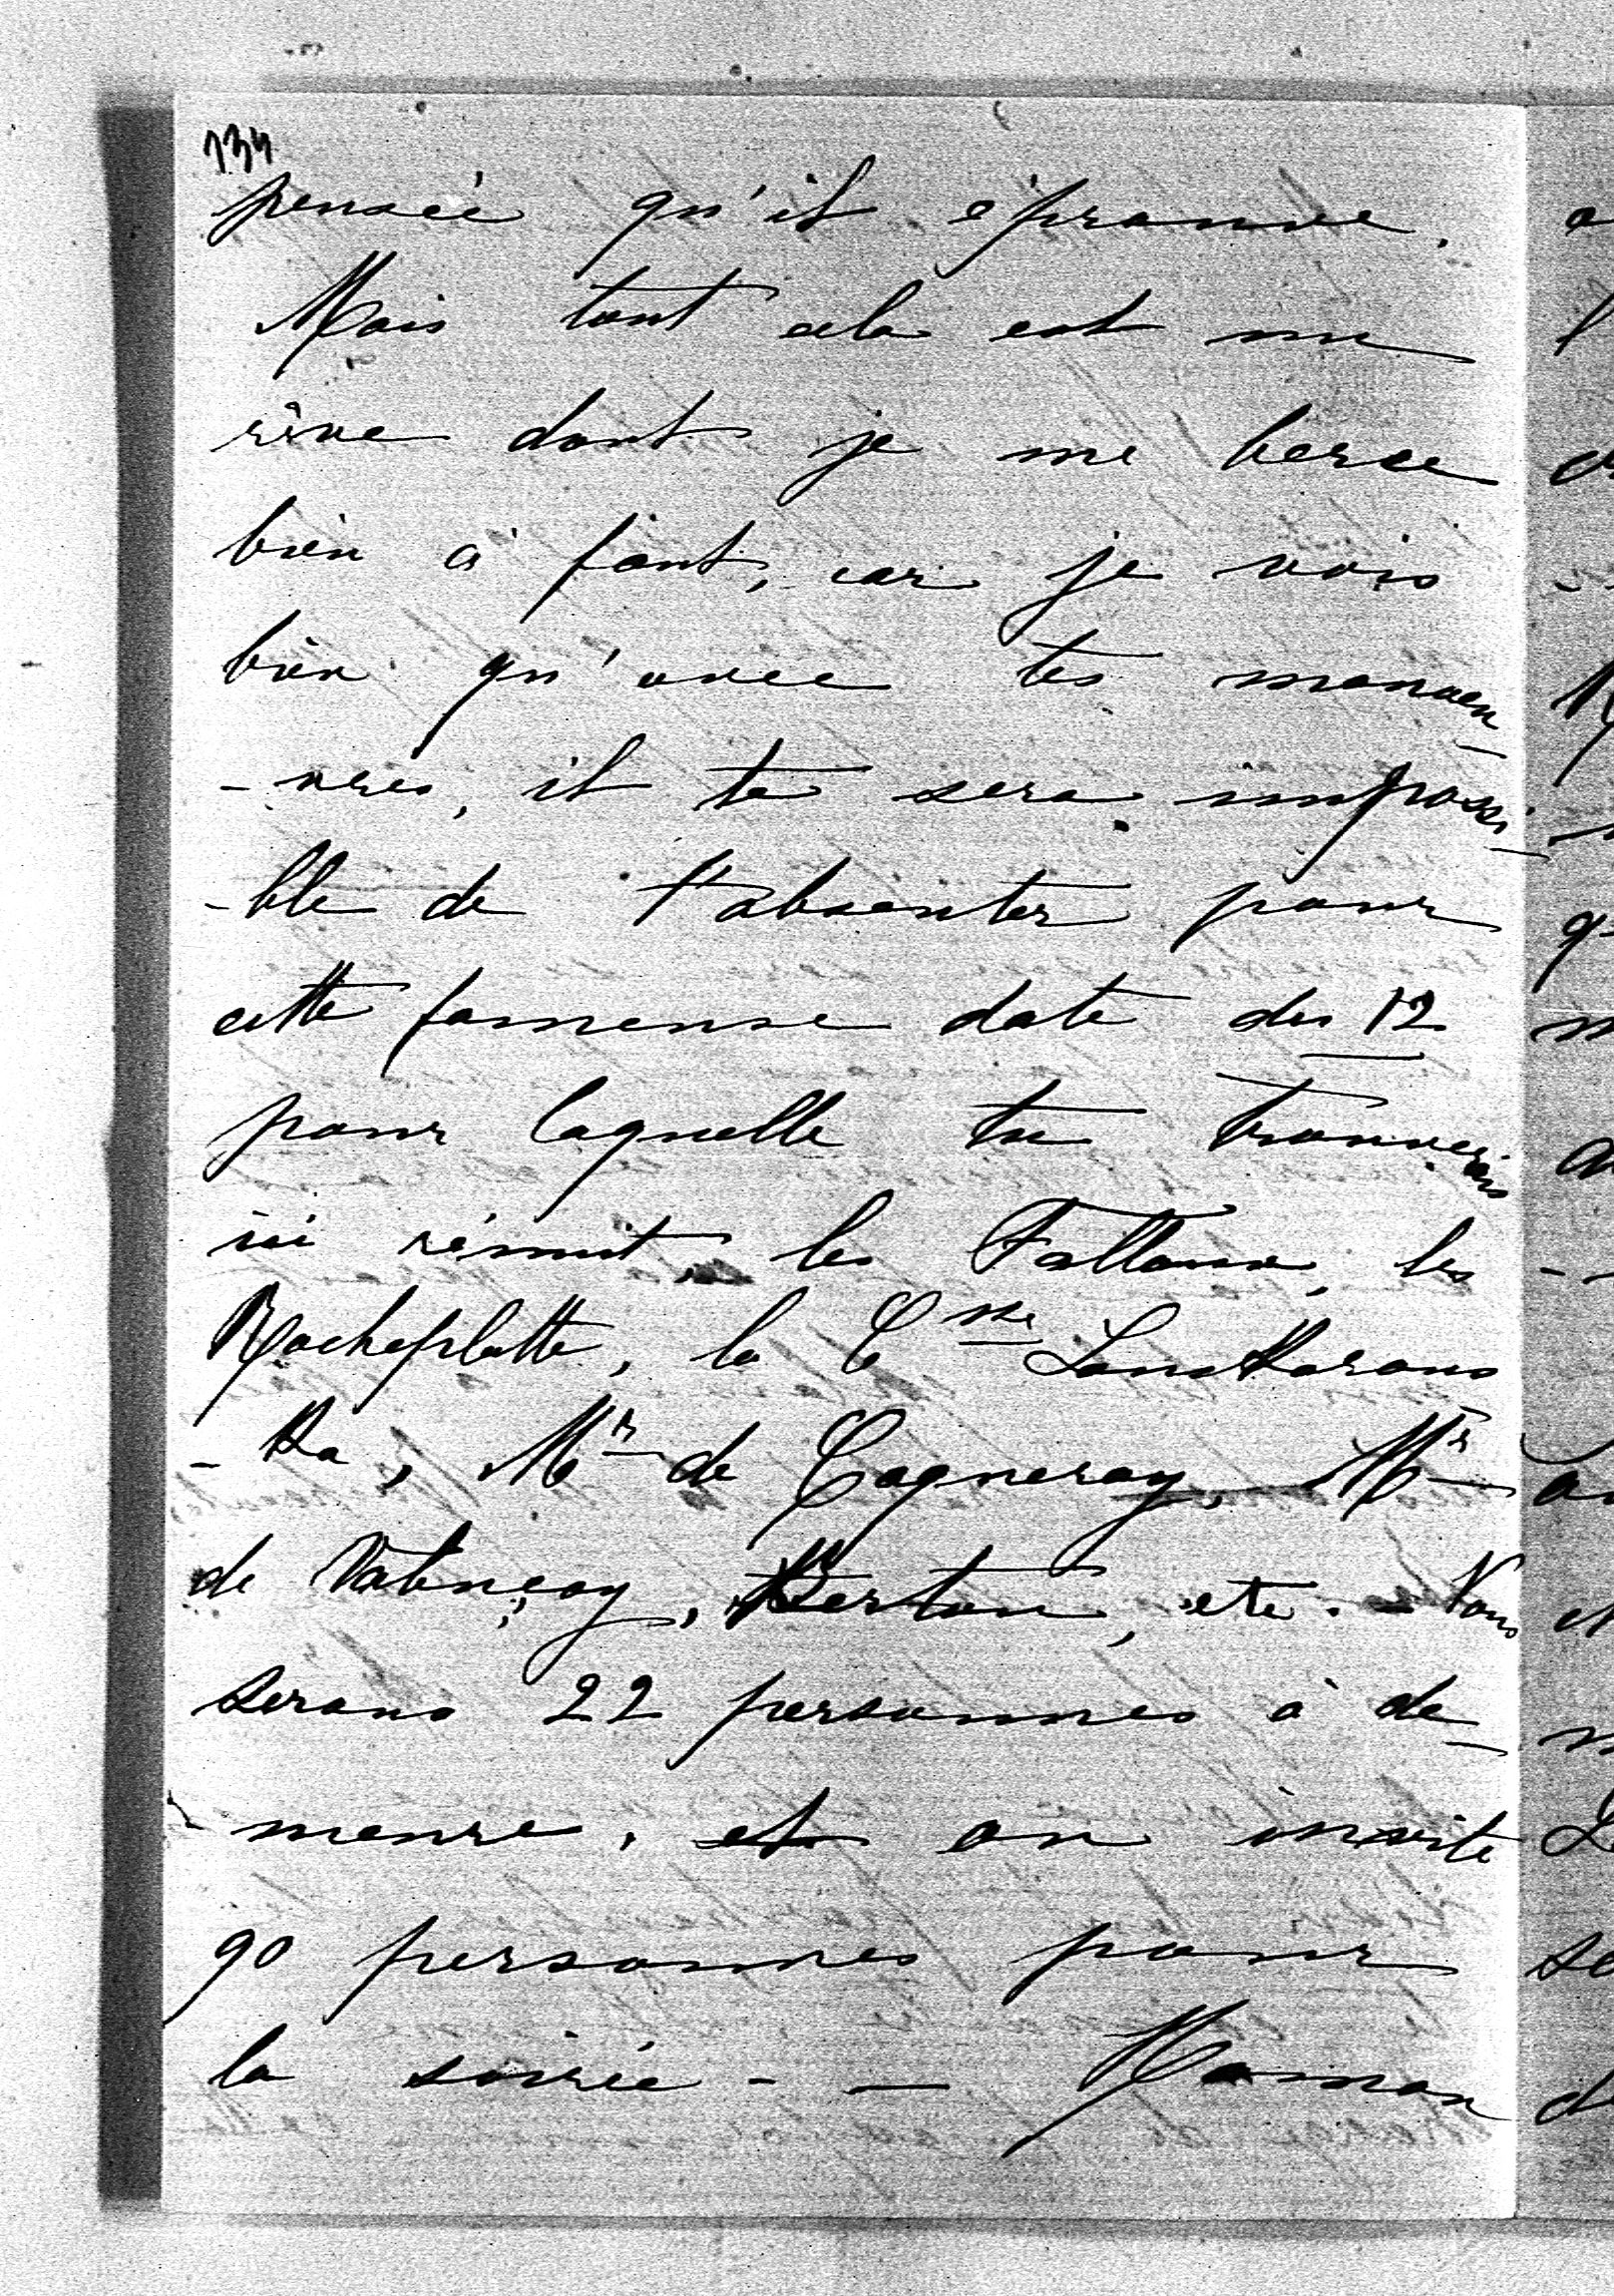 134
pensée qu'il éprouve.
Mais tout cela est un
rêve dont je me berce
bien à fort, car je vois
bien qu'avec tes manoeu
-vres, il te sera impossi-
-ble de t'absenter pour
cette fameuse date du 12
pour laquelle tu trouverais
ici réunit, les Falloux, les
Rocheplatte, la Csse Lanskorons
-Ka, Mr de Cogneray, Mr
de Valençay, Berton, etc. - Nous
serons 22 personnes à de-
-meure, et on invite
90 personnes pour
la soirée - - Maman